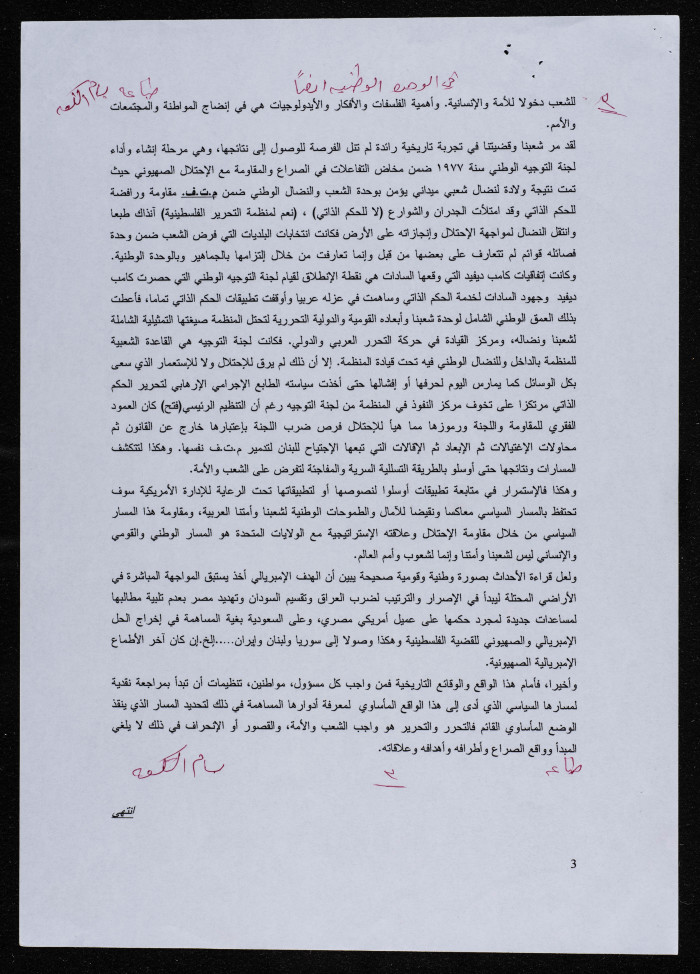 في الوحدة الوطنية ايضاً
طباعة بسام الكعبي
٣
للشعب دخولا للأمة والإنسانية. وأهمية الفلسفات والأفكار والأيدولوجيات هي في إنضاج المواطنة والمجتمعات
والأمم.
لقد مر شعبنا وقضيتنا في تجربة تاريخية رائدة لم تنل الفرصة للوصول إلى نتائجها، وهي مرحلة إنشاء وأداء
لجنة التوجيه الوطني سنة ١٩٧٧ ضمن مخاض التفاعلات في الصراع والمقاومة مع الإحتلال الصهيوني حيث
تمت نتيجة ولادة لنضال شعبي ميداني يؤمن بوحدة الشعب والنضال الوطني ضمن م.ت.ف. مقاومة ورافضة
للحكم الذاتي وقد امتلأت الجدران والشوارع (لا للحكم الذاتي) ، (نعم لمنظمة التحرير الفلسطينية) آنذاك طبعا
وانتقل النضال لمواجهة الإحتلال وإنجازاته على الأرض فكانت انتخابات البلديات التي فرض الشعب ضمن وحدة
فصائله قوائم لم تتعارف على بعضها من قبل وإنما تعارفت من خلال إلتزامها بالجماهير وبالوحدة الوطنية.
وكانت إتفاقيات كامب ديفيد التي وقعها السادات هي نقطة الإنطلاق لقيام لجنة التوجيه الوطني التي حصرت كامب
ديفيد وجهود السادات لخدمة الحكم الذاتي وساهمت في عزله عربيا وأوقفت تطبيقات الحكم الذاتي تماما، فأعطت
بذلك العمق الوطني الشامل لوحدة شعبنا وأبعاده القومية والدولية التحررية لتحتل المنظمة صيغتها التمثيلية الشاملة
لشعبنا ونضاله، ومركز القيادة في حركة التحرر العربي والدولي. فكانت لجنة التوجيه هي القاعدة الشعبية
للمنظمة بالداخل وللنضال الوطني فيه تحت قيادة المنظمة. إلا أن ذلك لم يرق للإحتلال ولا للإستعمار الذي سعى
بكل الوسائل كما يمارس اليوم لحرفها أو إفشالها حتى أخذت سياسته الطابع الإجرامي الإرهابي لتحرير الحكم
الذاتي مرتكزا على تخوف مركز النفوذ في المنظمة من لجنة التوجيه رغم أن التنظيم الرئيسي(فتح) كان العمود
الفقري للمقاومة واللجنة ورموزها مما هيأ للإحتلال فرص ضرب اللجنة بإعتبارها خارج عن القانون ثم
محاولات الإغتيالات ثم الإبعاد ثم الإقالات التي تبعها الإجتياح للبنان لتدمير م.ت.ف نفسها. وهكذا لتتكشف
المسارات ونتائجها حتى أوسلو بالطريقة التسللية السرية والمفاجئة لتفرض على الشعب والأمة.
وهكذا فالإستمرار في متابعة تطبيقات أوسلوا لنصوصها أو لتطبيقاتها تحت الرعاية للإدارة الأمريكية سوف
تحتفظ بالمسار السياسي معاكسا ونقيضا للأمال والطموحات الوطنية لشعبنا وأمتنا العربية، ومقاومة هذا المسار
السياسي من خلال مقاومة الإحتلال وعلاقته الإستراتيجية مع الولايات المتحدة هو المسار الوطني والقومي
والإنساني ليس لشعبنا وأمتنا وإنما لشعوب وأمم العالم.
ولعل قراءة الأحداث بصورة وطنية وقومية صحيحة يبين أن الهدف الإمبريالي أخذ يستبق المواجهة المباشرة في
الأراضي المحتلة ليبدأ في الإصرار والترتيب لضرب العراق وتقسيم السودان وتهديد مصر بعدم تلبية مطالبها
لمساعدات جديدة لمجرد حكمها على عميل أمريكي مصري، وعلى السعودية بغية المساهمة في إخراج الحل
الإمبريالي والصهيوني للقضية الفلسطينية وهكذا وصولا إلى سوريا ولبنان وإيران.....إلخ.إن كان آخر الأطماع
الإمبريالية الصهيونية.
وأخيرا، فأمام هذا الواقع والوقائع التاريخية فمن واجب كل مسؤول، مواطنين، تنظيمات أن تبدأ بمراجعة نقدية
لمسارها السياسي الذي أدى إلى هذا الواقع المأساوي لمعرفة أدوارها المساهمة في ذلك لتحديد المسار الذي ينقذ
الوضع المأساوي القائم فالتحرر والتحرير هو واجب الشعب والأمة، والقصور أو الإنحراف في ذلك لا يلغي
المبدأ وواقع الصراع وأطرافه وأهدافه وعلاقاته.
طباعة ٣ بسام الكعبي
انتهى
3